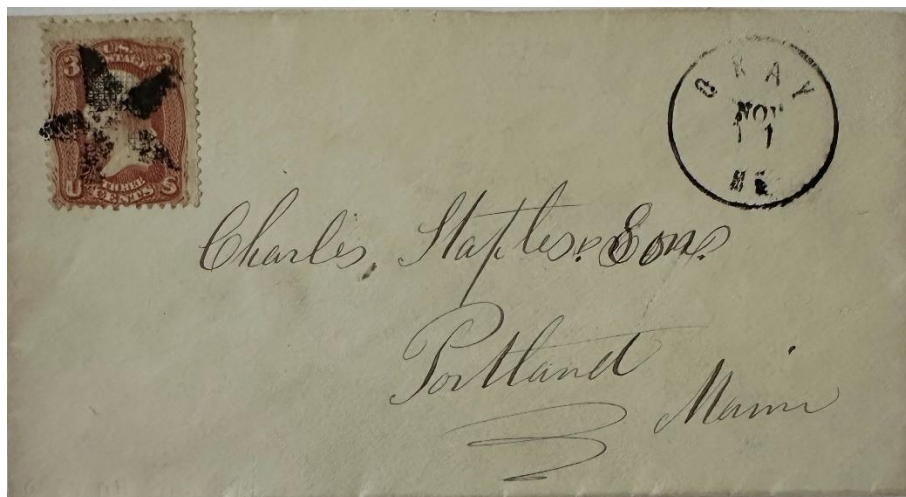 3 3
U.S.
POSTAGE
THREE
U CENTS S
GRAY
NOV
11
ME
Charles Staples & Son.
Portland
Maine